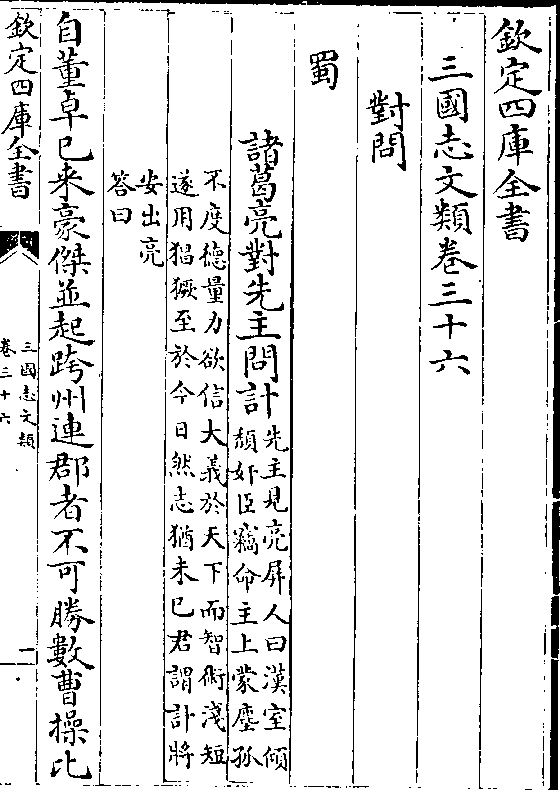 欽定四庫全書
三國志文類卷三十六
對問
蜀
諸葛亮對先主問計先主見亮屏人曰漢室傾
頹奸臣竊命主上蒙塵孤
不度德量力欲信大義於天下而智術淺短
遂用猖獗至於今日然志猶未已君謂計將
安出亮
答曰
自董卓已来豪傑並起跨州連郡者不可勝數曹操比
欽定四庫全書
三國志文類
卷三十六
一